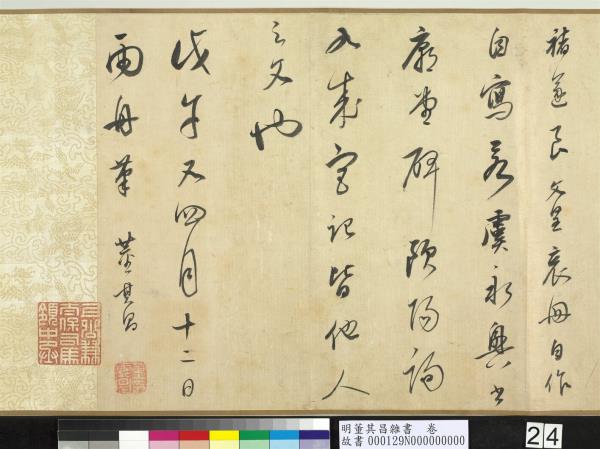 褚遂良文皇哀冊自作
自寫若虞永興書
廟堂碑歐陽詢
九成宮記皆他人
之文也
戊午又四月十二日
雨舟筆 董其昌
明董其昌雜書 卷
故書 000129N000000000
24